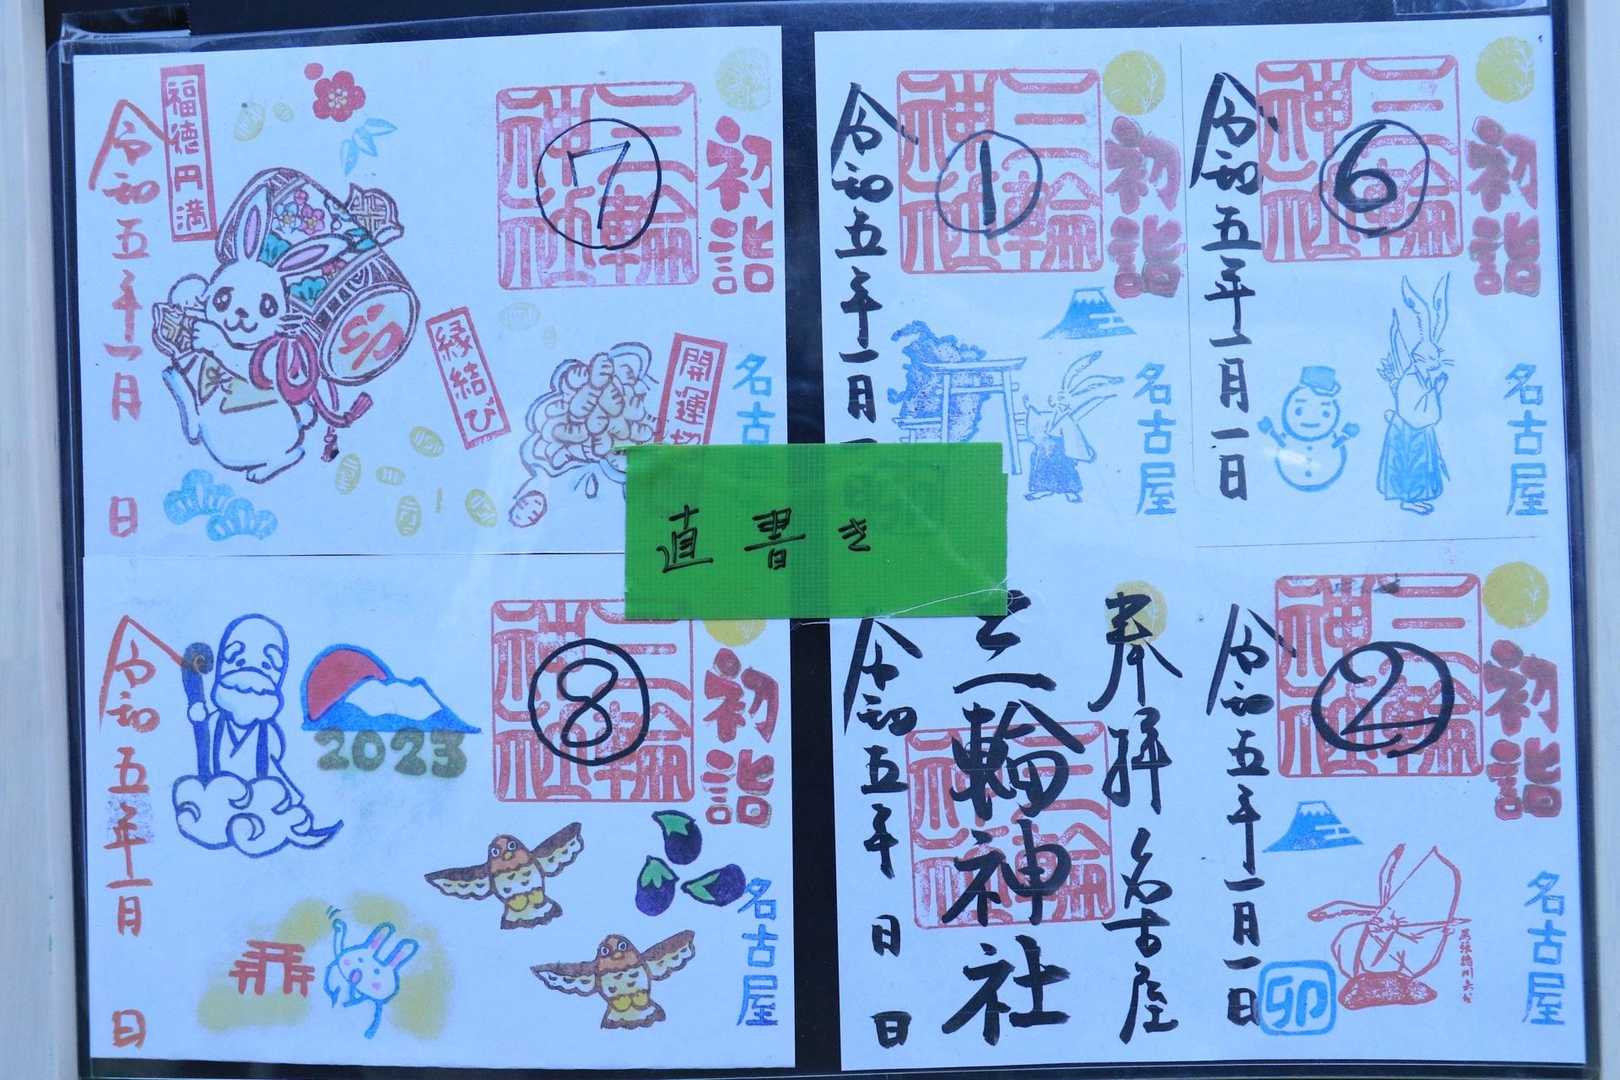 福徳円満
令和五年一月 日
三輪神社
⑦
初詣
縁結び
開運招
名古屋
令和五年一月
三輪神社
①
初詣
名古屋
令和五年一月一日
三輪神社
⑥
初詣
名古屋
直書き
令和五年一月 日
2023
三輪神社
⑧
初詣
名古屋
奉拝 名古屋
三輪神社
令和五年 日 日
令和五年一月一日
三輪神社
②
初詣
卯
名古屋